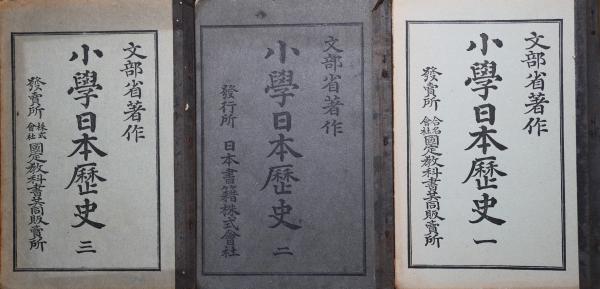 文部省著作
小學日本歷史 一
發賣所 合名會社 國定敎科書共同販賣所
文部省著作
小學日本歷史 二
發行所 日本書籍株式會社
文部省著作
小學日本歷史 三
發賣所 株式會社 國定敎科書共同販賣所